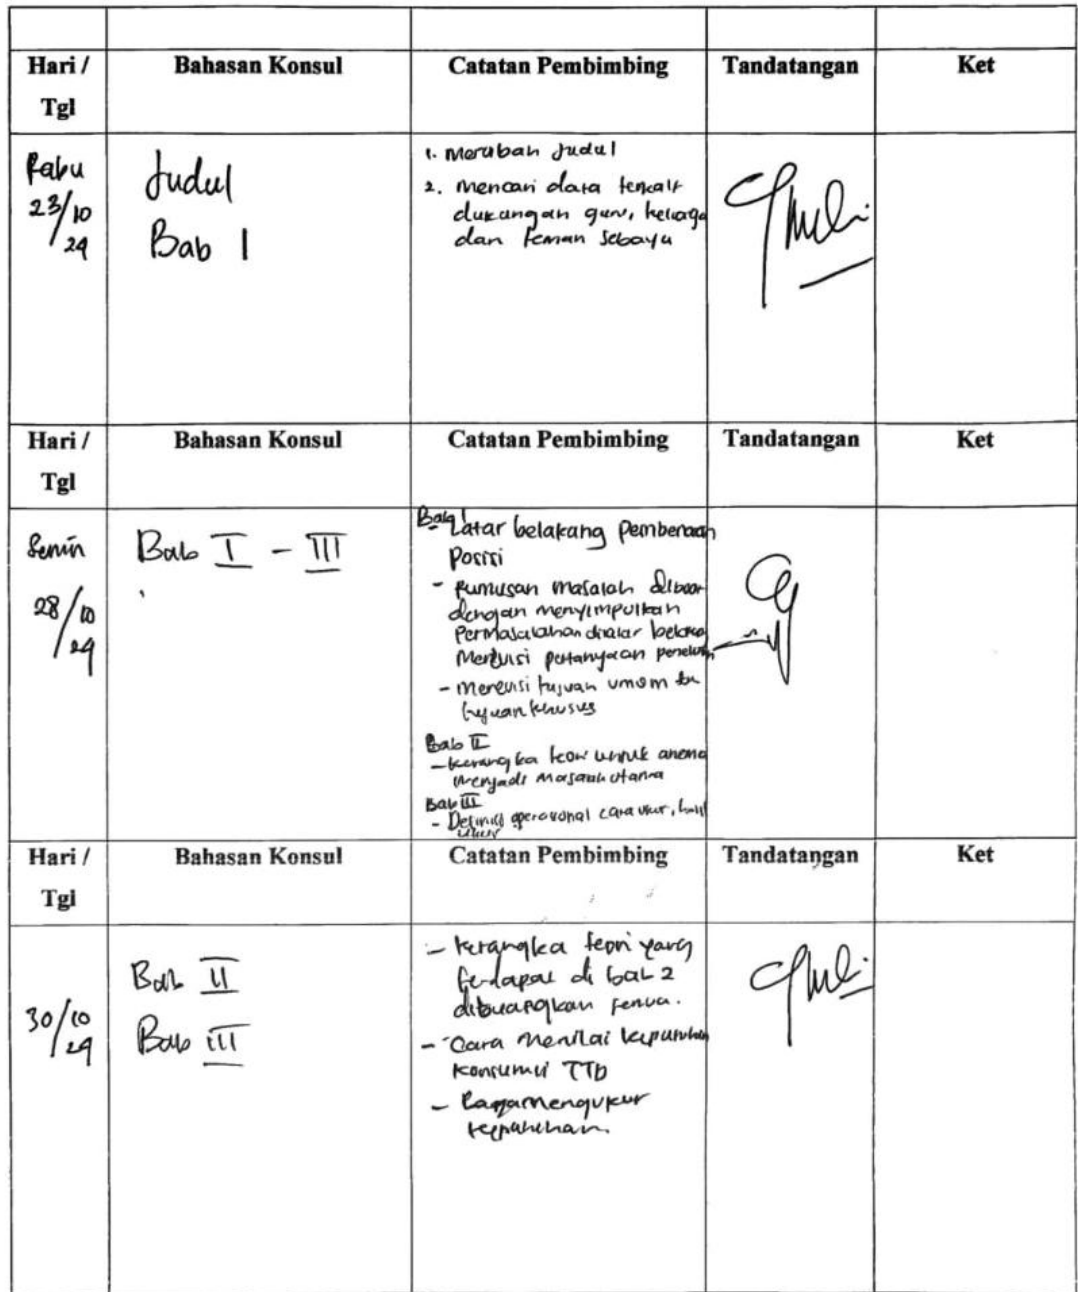 Hari / Tgl Bahasan Konsul Catatan Pembimbing Tandatangan Ket
Rabu
23/10
24
Judul
Bab I
1. Merubah Judul
2. Mencari data terkait
dukungan guru, keluarga
dan teman sebaya
Hari / Tgl Bahasan Konsul Catatan Pembimbing Tandatangan Ket
Senin
28/10
24
Bab I - III
Bab I
Latar belakang
Posisi
- Rumusan masalah
dengan menyimpulkan
Permasalahan
Merevisi pertanyaan
- Merevisi tujuan umum
tujuan khusus
Bab II
- kerangka teori untuk
menjadi masalah utama
Bab III
- Definisi operasional cara ukur,
ukur
Hari / Tgl Bahasan Konsul Catatan Pembimbing Tandatangan Ket
30/10
24
Bab II
Bab III
- kerangka teori yang
terdapat di bab 2
- Cara menilai
konsumsi TTD
- mengukur
kepatuhan